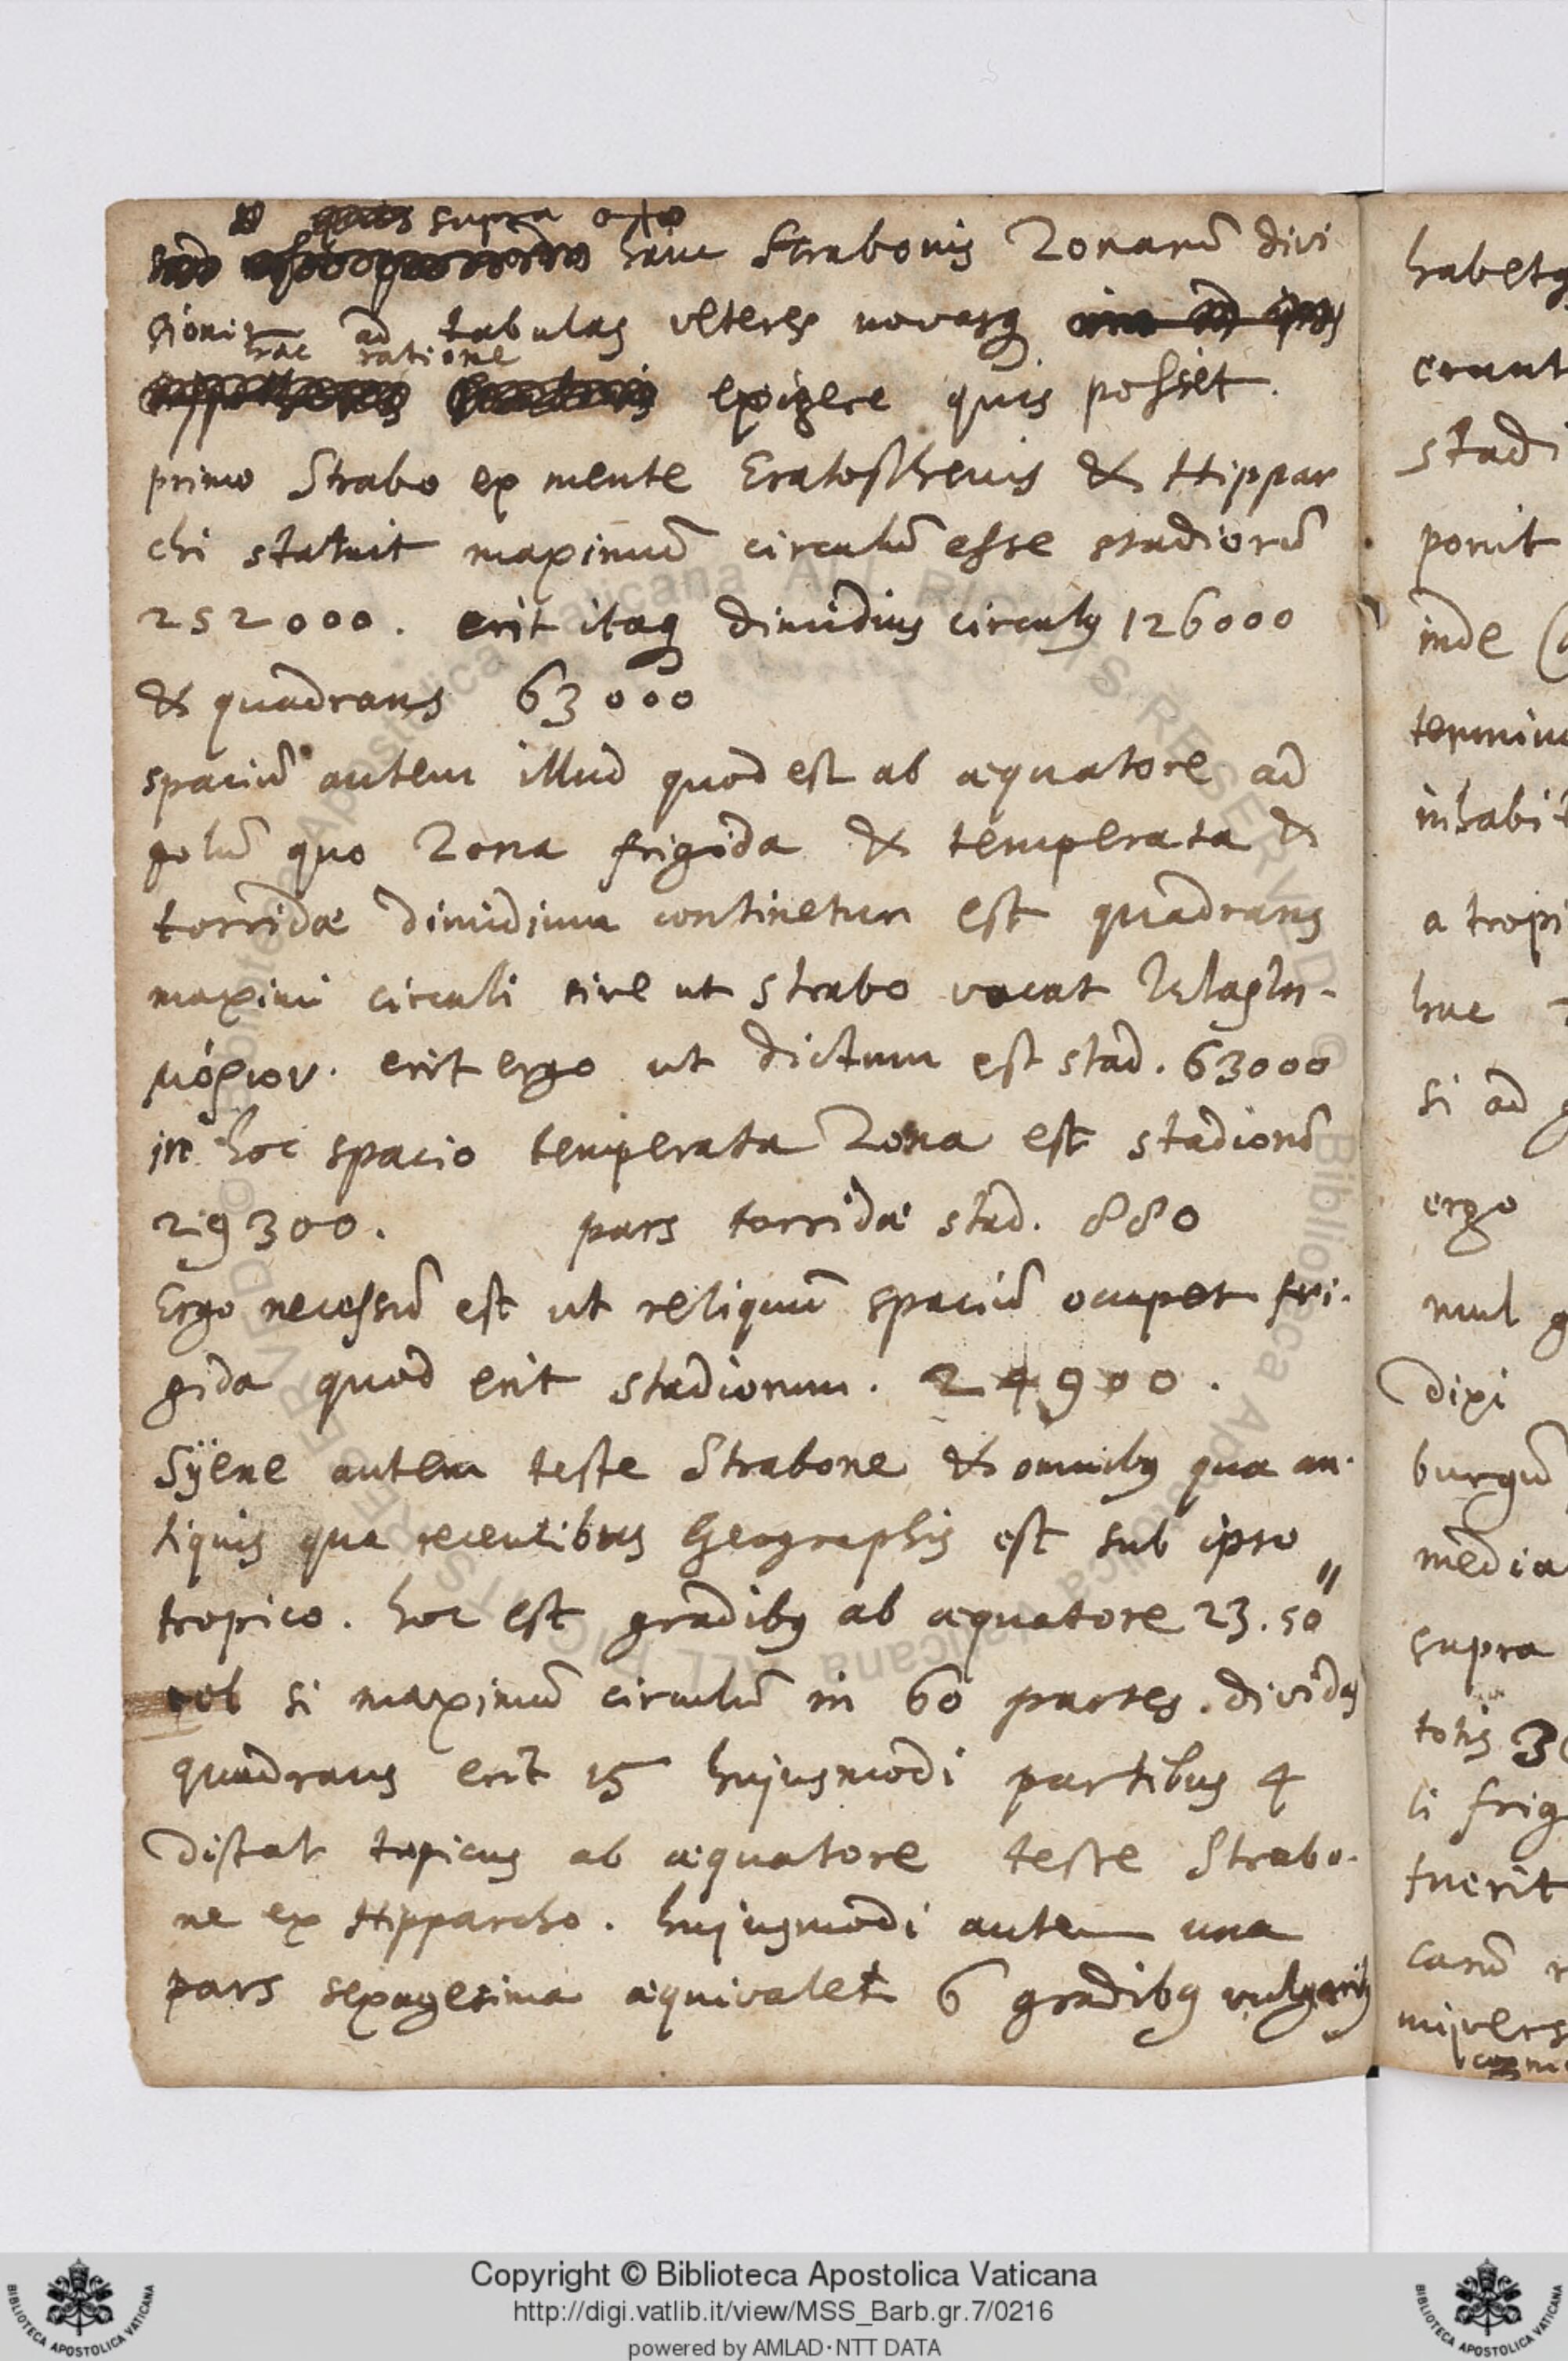 supra
hanc Strabonis Zonarũ divi
sionis ad tabulas veteres novasq
hac ratione
exigere quis posset.
primo Strabo ex mente Eratosthenis & Hippar
chi statuit maximũ circulũ esse stadiorũ
252000. erit itaq dimidius circulus 126000
& quadrans 63000
spaciũ autem illud quod est ab æquatore ad
polũ quo Zona frigida & temperata &
torridæ dimidium continetur est quadrans
maximi circuli sive ut Strabo vocat τεταρτη-
μόριον. erit ergo ut dictum est stad. 63000
in hoc spacio temperata Zona est stadiorũ
29300. pars torridæ stad. 880
Ergo necessũ est ut reliquũ spaciũ occupet fri-
gida quod erit stadiorum. 24900.
Sÿene autem teste Strabone & omnibus qua an-
tiquis qua recentibus Geographis est sub ipso
tropico. hoc est gradibus ab æquatore 23.50"
vel si maximũ circulũ in 60 partes. dividas
quadrans erit 15 hujusmodi partibus 4
distat tropicus ab æquatore teste Strabo-
ne ex Hipparcho. hujusmodi autem una
pars sexagesima æquivalet 6 gradibus vulgaribus
habetq
erunt
stadi
ponit
inde
termin
inhabit
a tropi
huc
si ad
ergo
dixi
burgũ
media
supra
totis
li frig
fuerit
Copyright © Biblioteca Apostolica Vaticana
http://digi.vatlib.it/view/MSS_Barb.gr.7/0216
powered by AMLAD·NTT DATA
BIBLIOTECA APOSTOLICA VATICANA
BIBLIOTECA APOSTOLICA VATICANA